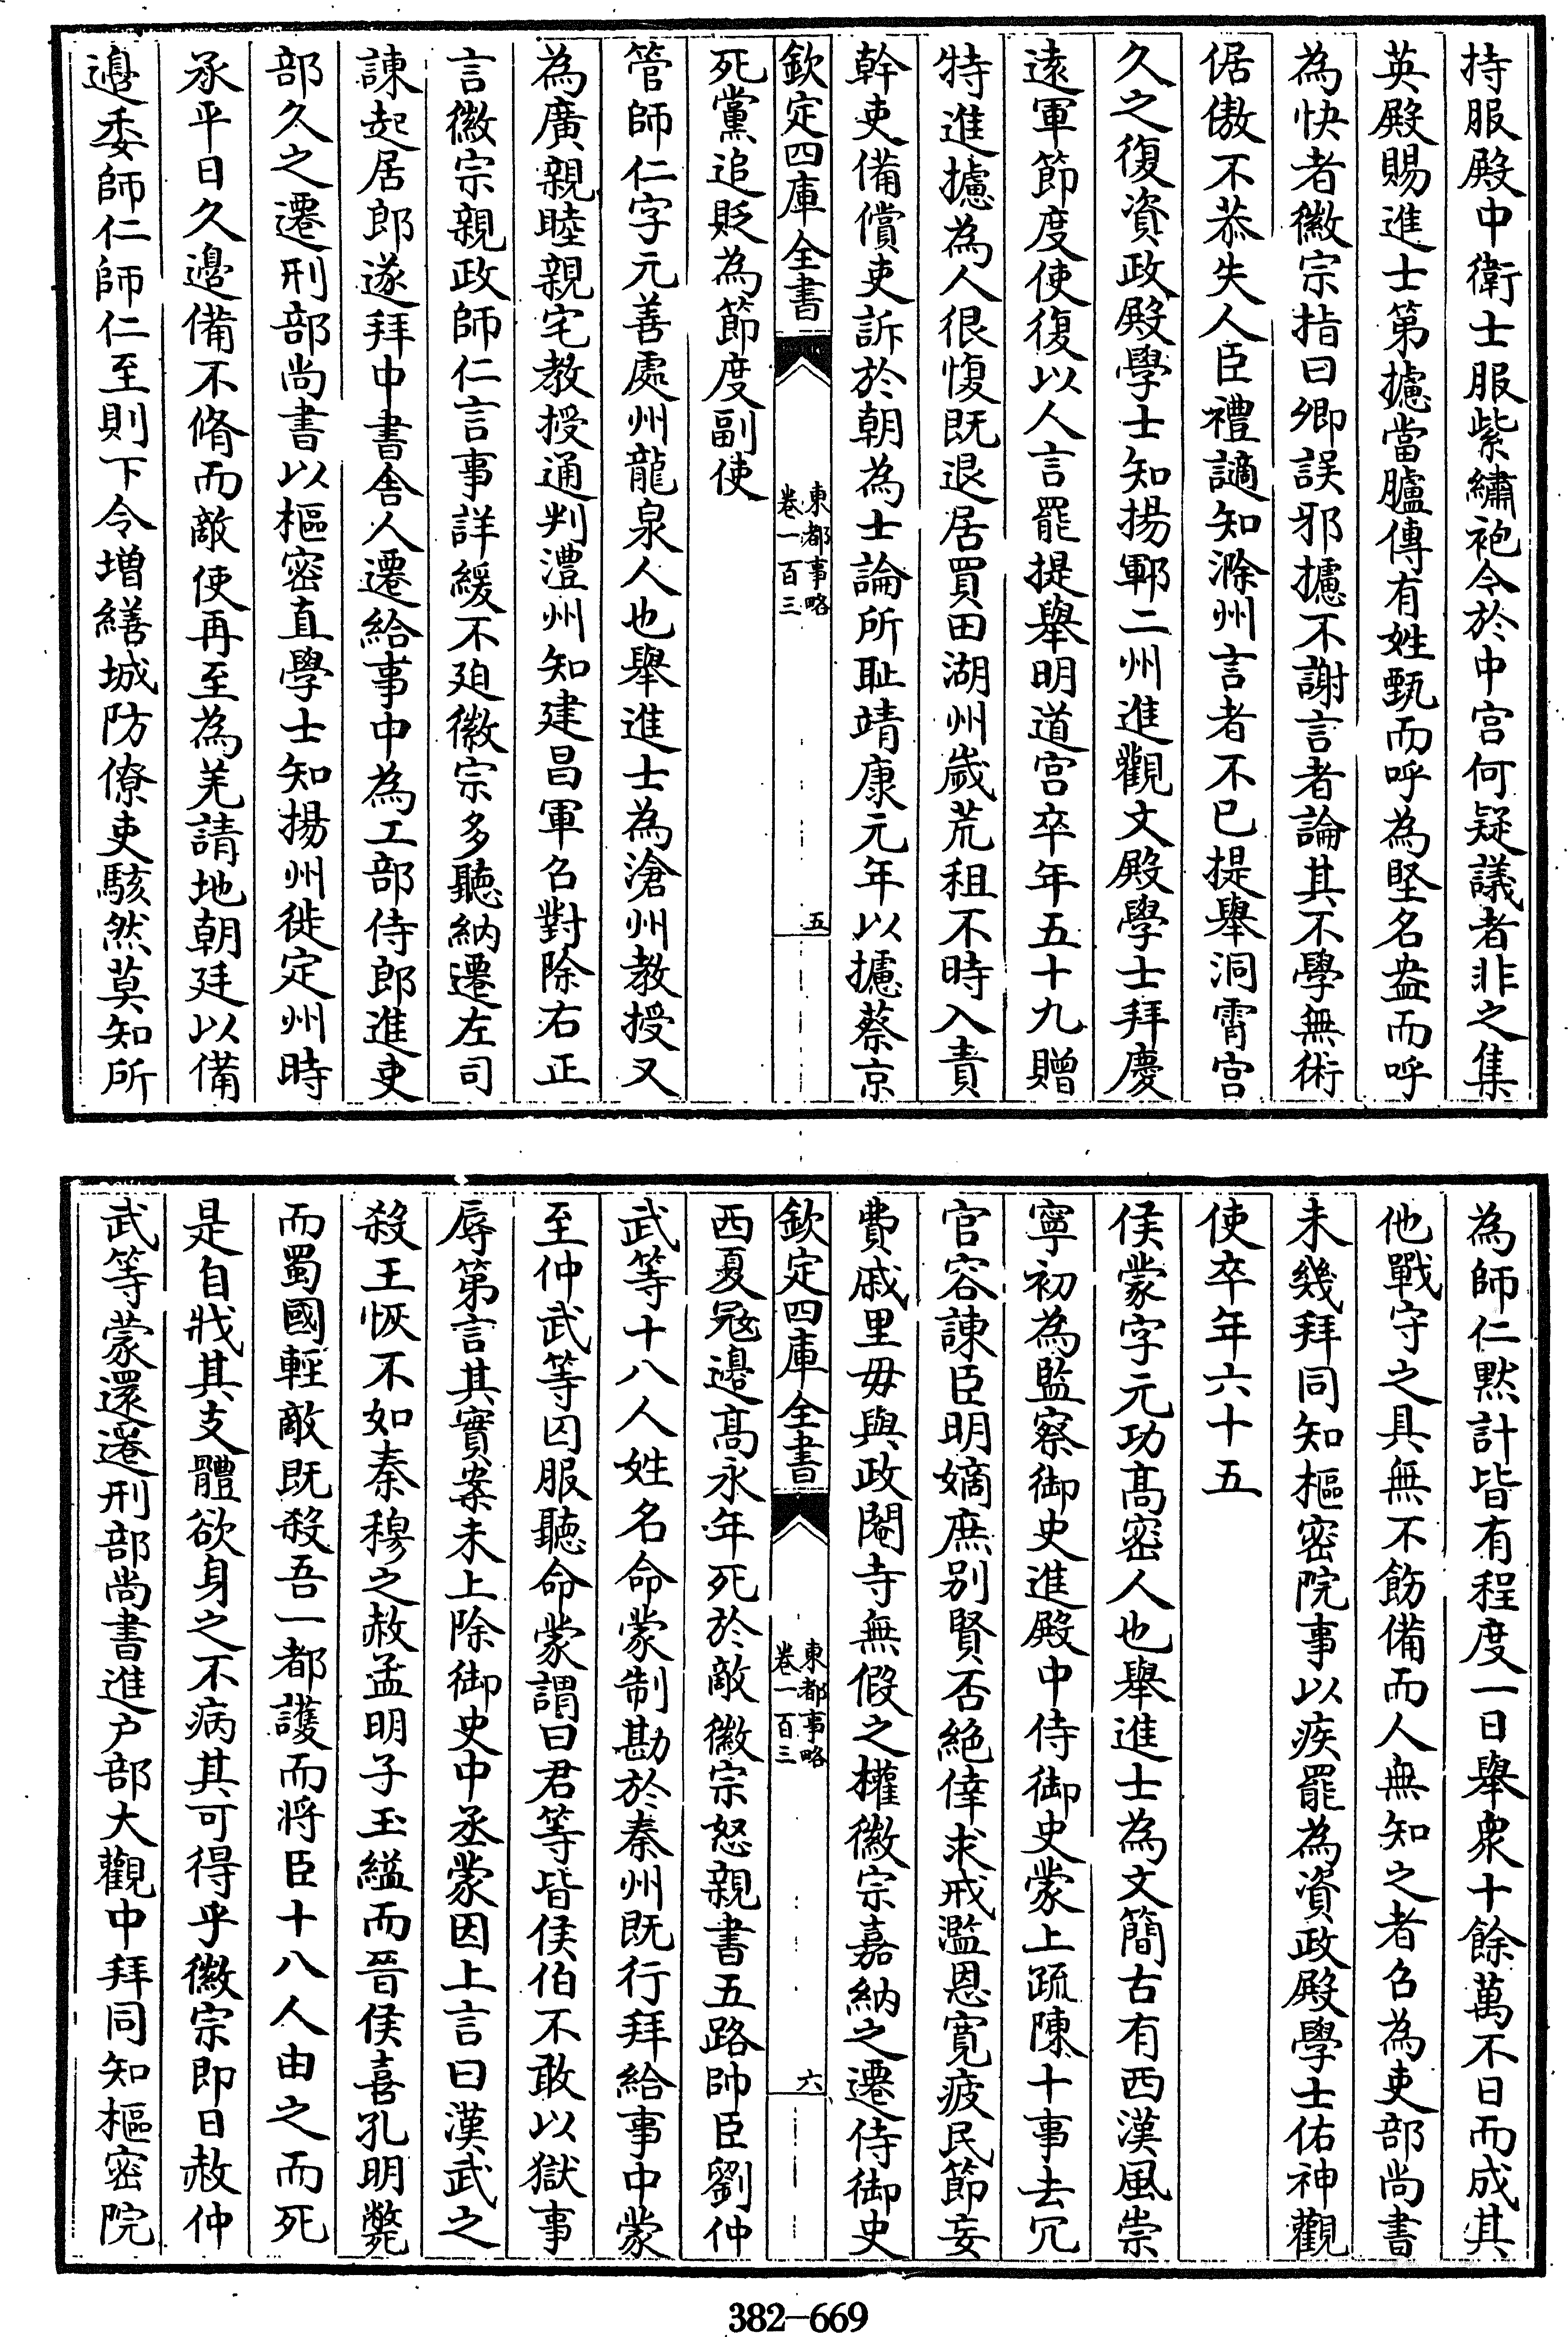 持服殿中衛士服紫繡袍令於中宫何疑議者非之集
英殿賜進士第攄當臚傳有姓甄而呼為堅名盎而呼
為快者徽宗指曰卿誤邪攄不謝言者論其不學無術
倨傲不恭失人臣禮謫知滁州言者不已提舉洞霄宫
久之復資政殿學士知揚鄆二州進觀文殿學士拜慶
逺軍節度使復以人言罷提舉明道宫卒年五十九贈
特進攄為人很愎既退居買田湖州嵗荒租不時入責
幹吏備償吏訴於朝為士論所耻靖康元年以攄蔡京
欽定四庫全書
東都事略
卷一百三
五
死黨追貶為節度副使
管師仁字元善處州龍泉人也舉進士為滄州教授又
為廣親睦親宅教授通判澧州知建昌軍召對除右正
言徽宗親政師仁言事詳緩不廹徽宗多聽納遷左司
諫起居郎遂拜中書舎人遷給事中為工部侍郎進吏
部久之遷刑部尚書以樞密直學士知揚州徙定州時
承平日久邉備不脩而敵使再至為羌請地朝廷以備
邉委師仁師仁至則下令增繕城防僚吏駭然莫知所
為師仁黙計皆有程度一日舉衆十餘萬不日而成其
他戰守之具無不飭備而人無知之者召為吏部尚書
未幾拜同知樞密院事以疾罷為資政殿學士佑神觀
使卒年六十五
侯蒙字元功髙密人也舉進士為文簡古有西漢風崇
寧初為監察御史進殿中侍御史蒙上疏陳十事去冗
官容諫臣明嫡庶别賢否絶倖求戒濫恩寛疲民節妄
費戚里毋與政閹寺無假之權徽宗嘉納之遷侍御史
欽定四庫全書
東都事略
卷一百三
六
西夏冦邉髙永年死於敵徽宗怒親書五路帥臣劉仲
武等十八人姓名命蒙制勘於秦州既行拜給事中蒙
至仲武等囚服聽命蒙謂曰君等皆侯伯不敢以獄事
辱第言其實案未上除御史中丞蒙因上言曰漢武之
殺王恢不如秦穆之赦孟明子玉縊而晉侯喜孔明斃
而蜀國輕敵既殺吾一都䕶而將臣十八人由之而死
是自戕其支體欲身之不病其可得乎徽宗即日赦仲
武等蒙還遷刑部尚書進户部大觀中拜同知樞密院
382-669